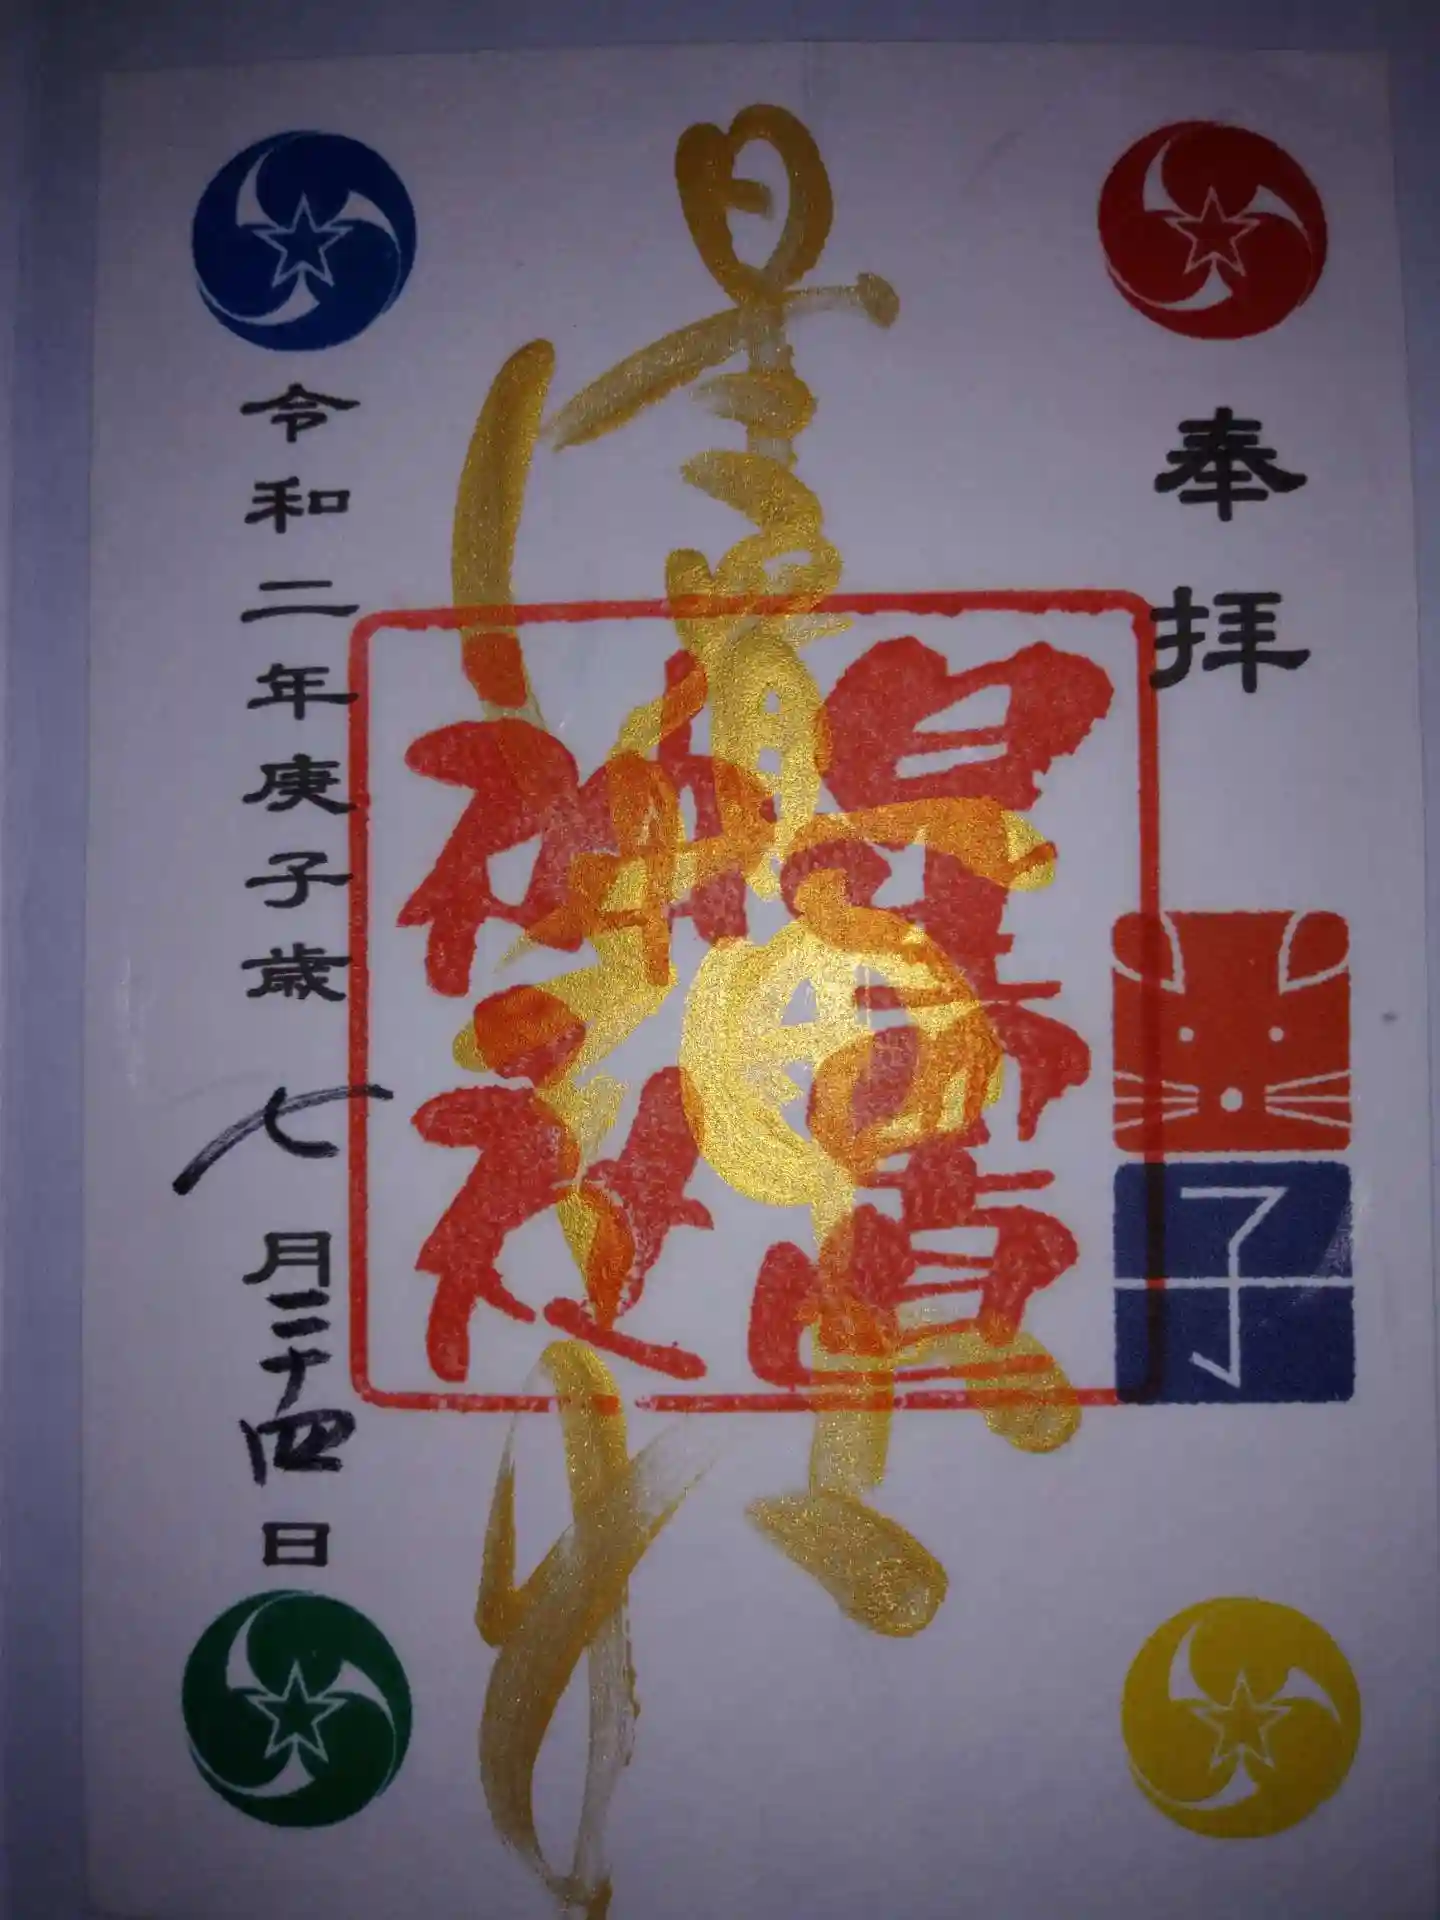 奉拝
子
星置
神社
令和二年庚子歳 七月二十四日